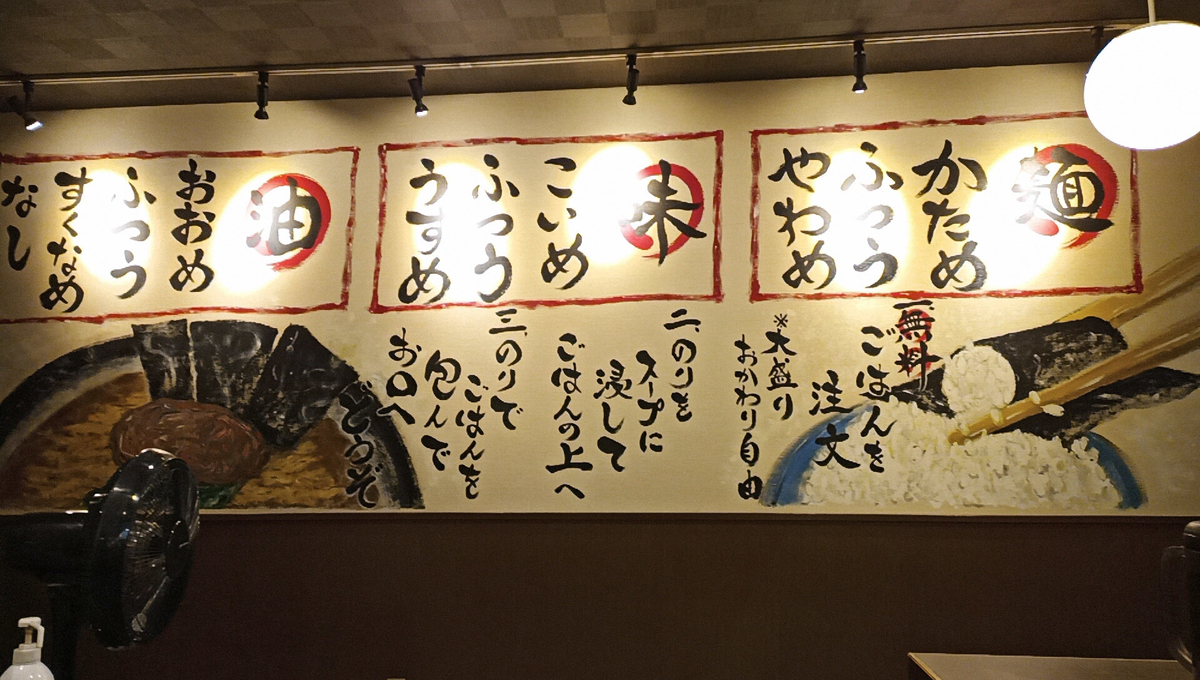 麺
かため
ふつう
やわめ
味
こいめ
ふつう
うすめ
油
おおめ
ふつう
すくなめ
なし
一、無料
ごはんを
注文
※大盛り
おかわり自由
二、のりを
スープに
浸して
ごはんの上へ
三、のりで
ごはんを
包んで
お口へ
どうぞ